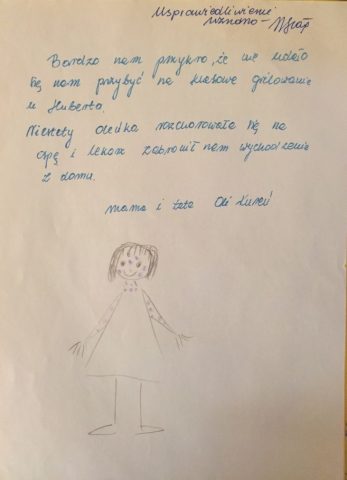 Usprawiedliwienie
uznano -
Bardzo nam przykro, że nie udało
się nam przybyć na klasowe grillowanie
u Huberta.
Niestety Oleńka rozchorowała się na
ospę i lekarz zabronił nam wychodzenia
z domu.
mama i tata Oli